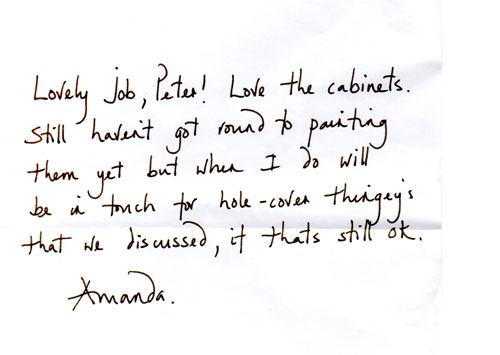 Lovely job, Peter! Love the cabinets.
Still haven't got round to painting
them yet but when I do will
be in touch for hole-cover thingey's
that we discussed, if thats still ok.
Amanda.